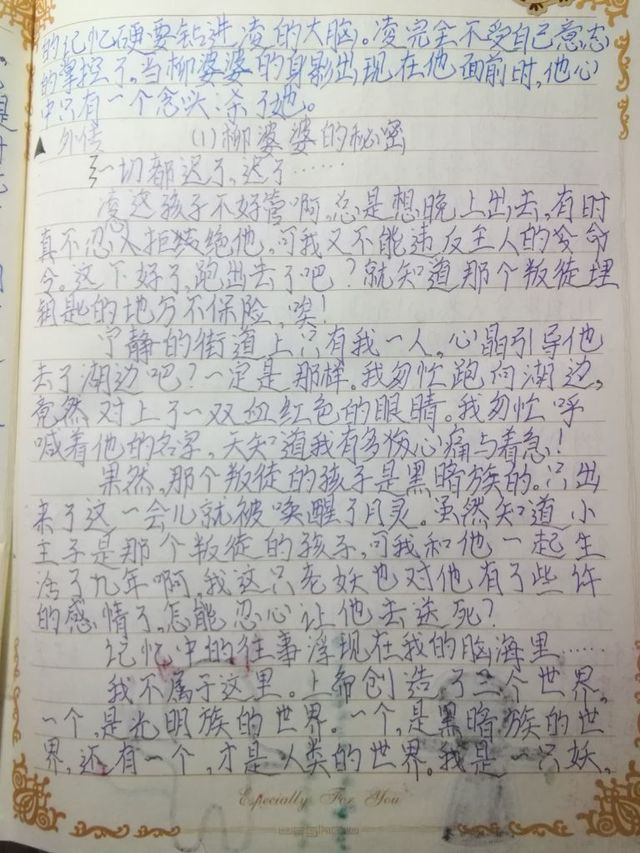 的记忆硬要钻进凌的大脑。凌完全不受自己意志
的掌控了。当柳婆婆的身影出现在他面前时,他心
中只有一个念头:杀了她。
▲外传 (1)柳婆婆的秘密
一切都迟了,迟了……
凌这孩子不好管啊,总是想晚上出去,有时
真不忍心拒绝他,可我又不能违反主人的命
令。这下好了,跑出去了吧?就知道那个叛徒埋
钥匙的地方不保险,唉!
宁静的街道上只有我一人。心晶引导他
去了湖边吧?一定是那样。我匆忙跑向湖边,
竟然对上了一双血红色的眼睛。我匆忙呼
喊着他的名字,天知道我有多伤心痛与着急!
果然,那个叛徒的孩子是黑暗族的。只出
来了这一会儿就被唤醒了月灵。虽然知道小
王子是那个叛徒的孩子,可我和他一起生
活了九年啊,我这只老妖也对他有了些许
的感情了,怎能忍心让他去送死?
记忆中的往事浮现在我的脑海里……
我不属于这里。上帝创造了三个世界,
一个,是光明族的世界。一个,是黑暗族的世
界,还有一个,才是人类的世界。我是一只妖,
Especially For You